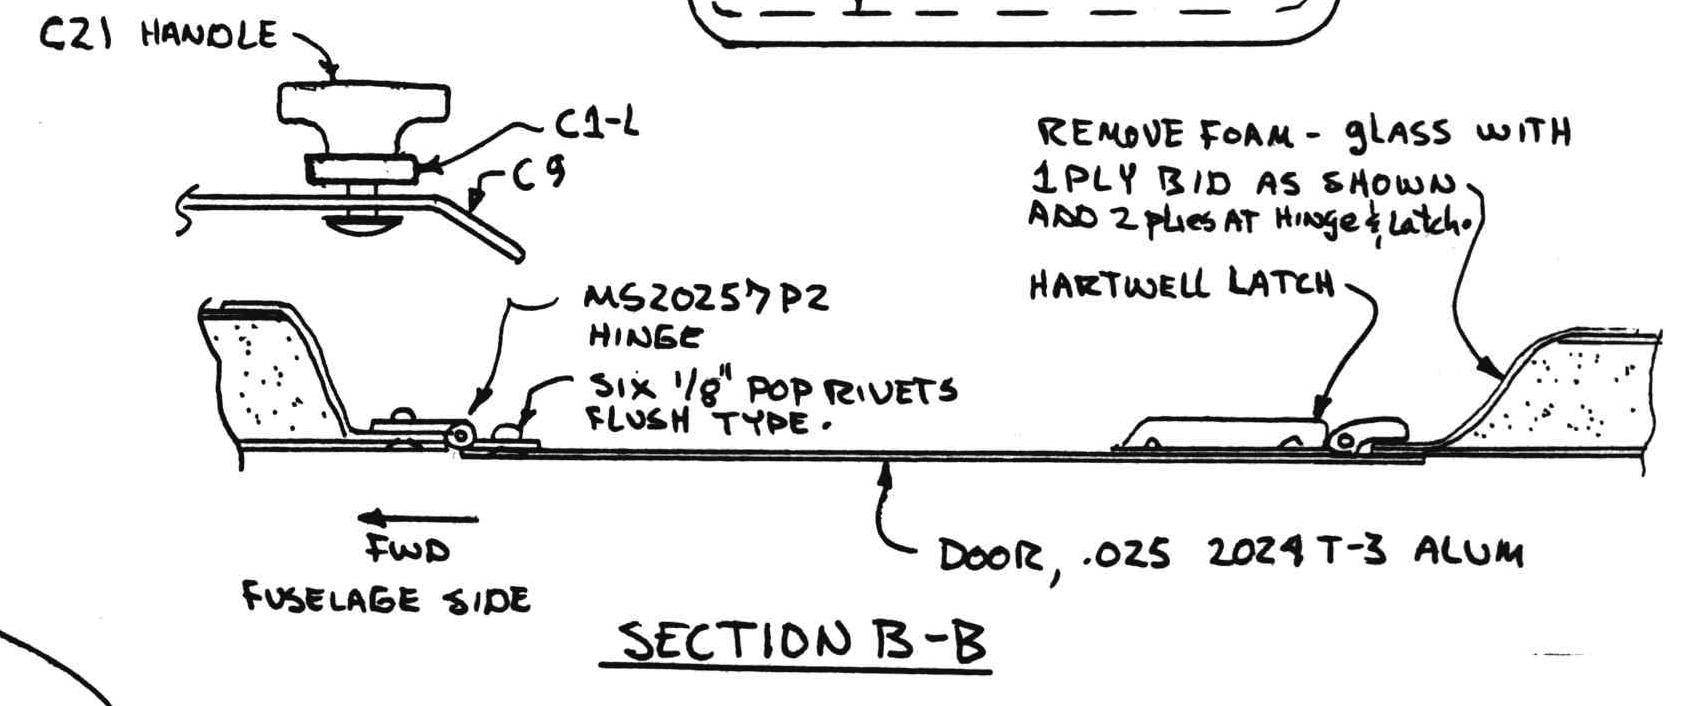 C21 HANDLE
C1-L
C9
REMOVE FOAM - GLASS WITH
1 PLY BID AS SHOWN
ADD 2 plies AT Hinge & Latch.
HARTWELL LATCH
MS20257P2
HINGE
SIX 1/8" POP RIVETS
FLUSH TYPE.
FWD
FUSELAGE SIDE
DOOR, .025 2024 T-3 ALUM
SECTION B-B